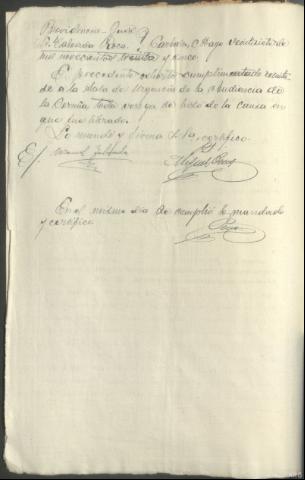 Providencia Juez
Sr. Calvarón Roca. } Carballo, Mayo veintisiete de
mil novecientos treinta y cinco.
El precedente exhorto cumplimentado remíta-
se a la Sala de Urgencia de la Audiencia de
la Coruña toda vez que ha sido de la causa en
que fue librado.
Lo mandó y firma S.Sª, certifico.
E/.
Miguel
En el mismo día se cumplió lo mandado
y certifico.